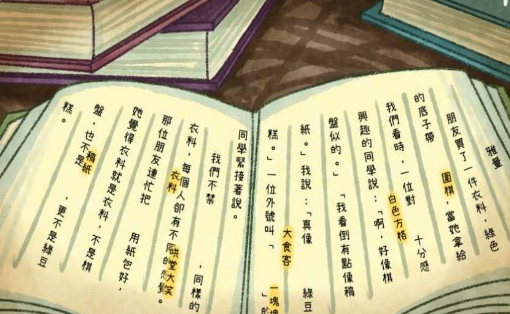 雅量
朋友買了一件衣料，綠色
的底子帶圍棋，當她拿給
我們看時，一位對白色方格十分感
興趣的同學說：「啊，好像棋
盤似的。」「我看倒有點像稿
紙。」我說：「真像大食客綠豆
糕。」一位外號叫「一塊塊」的
同學緊接著說。
我們不禁哄堂大笑，同樣的
衣料，每個人卻有不同的感覺。
那位朋友連忙把衣料用紙包好，
她覺得衣料就是衣料，不是棋
盤，也不是稿紙，更不是綠豆
糕。